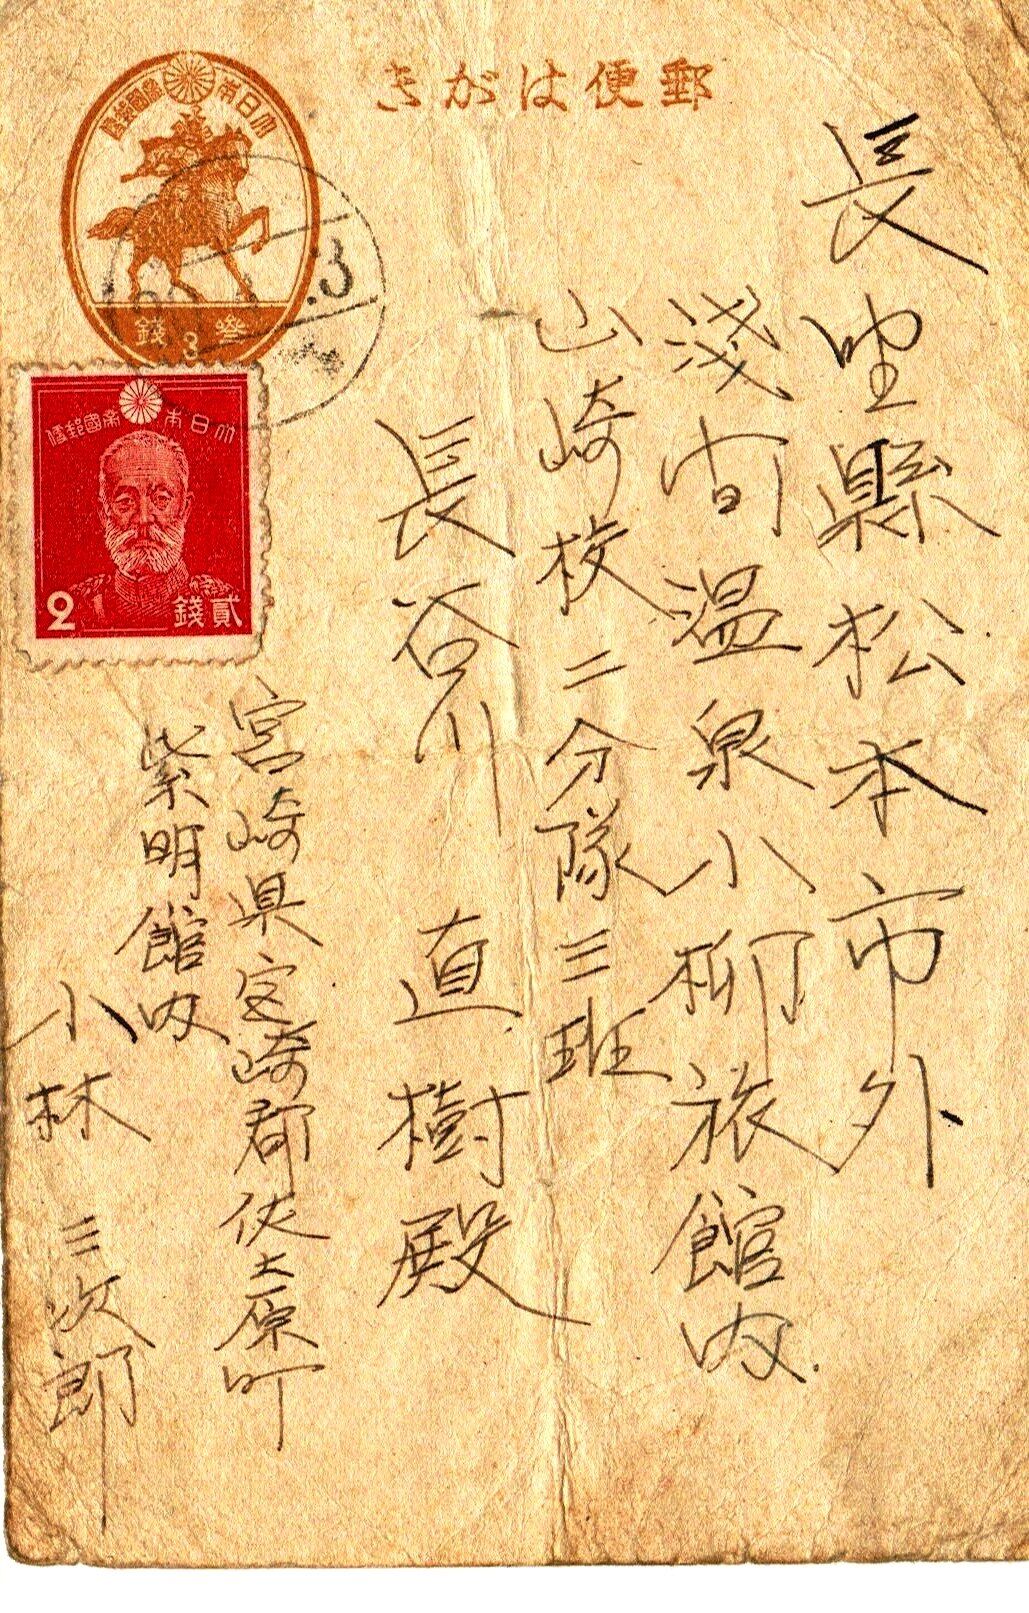 郵便はがき
大日本帝國郵便
參錢
3
.3
大日本帝國郵便
2
貳錢
長野縣松本市外
淺間温泉小柳旅館内
山崎校二分隊三班
長谷川直樹殿
宮崎県宮崎郡佐土原町
紫明館内
小林三次郎